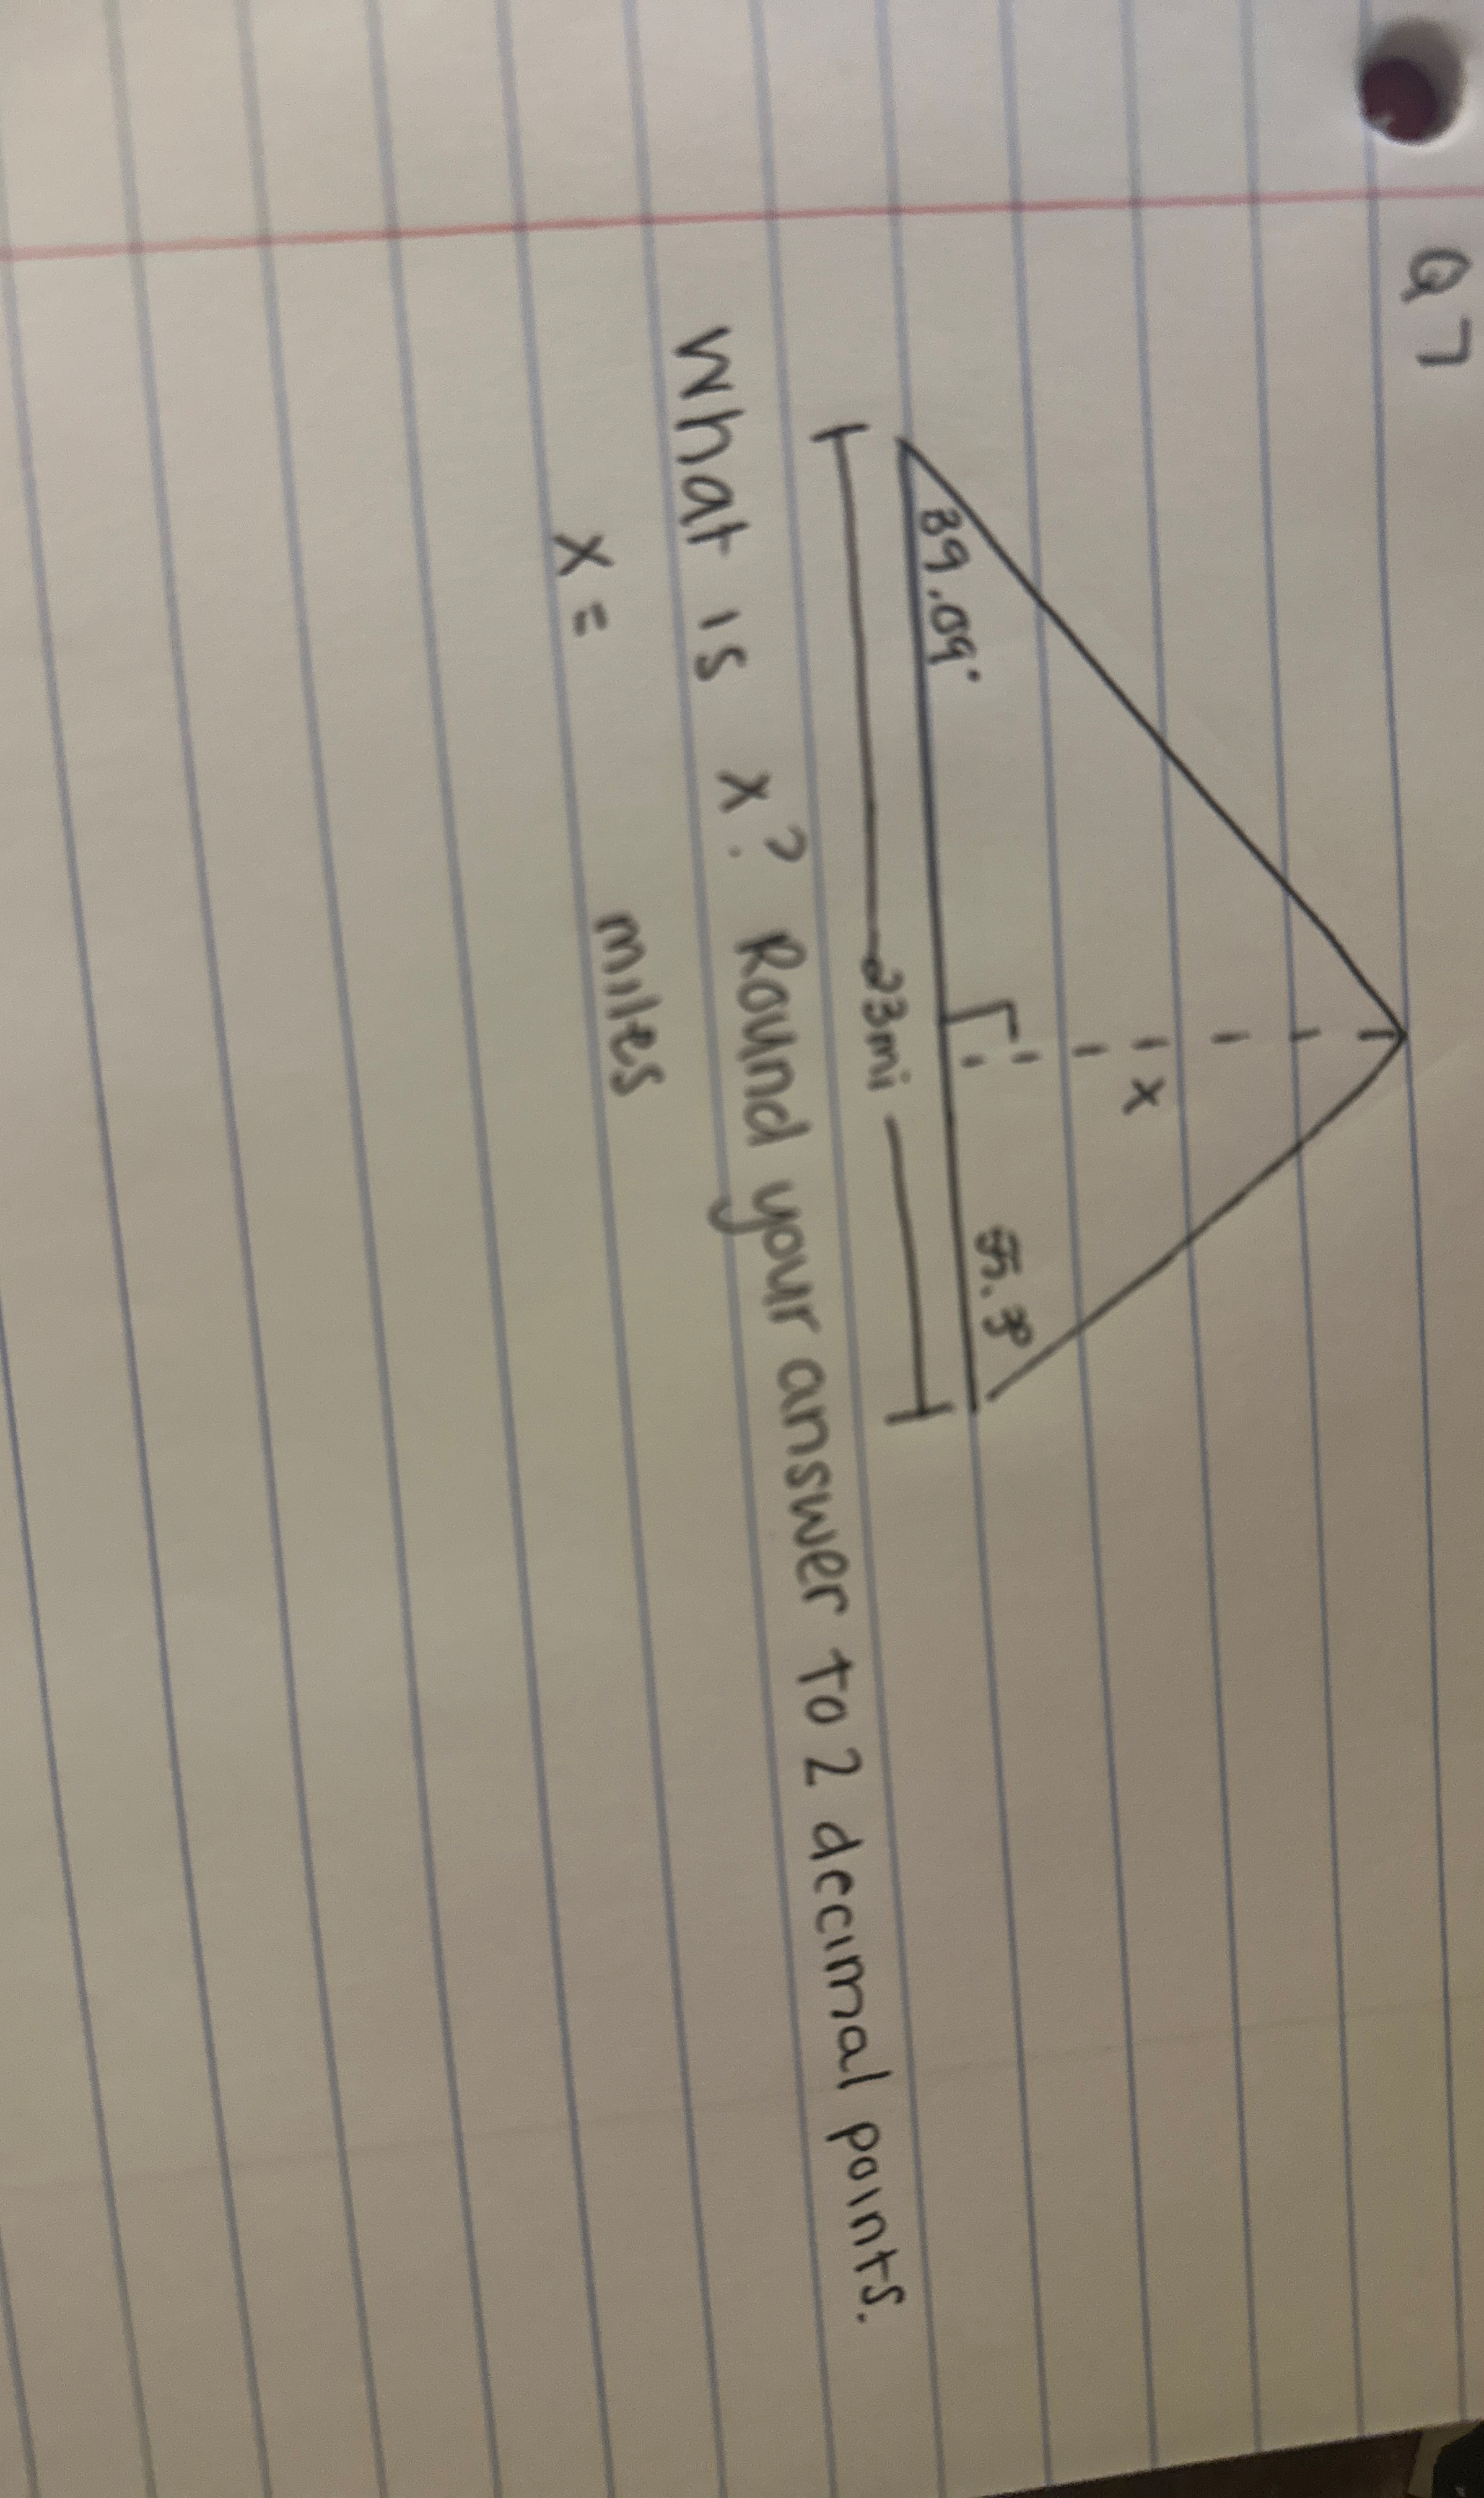 Q7
x
39.09°
23mi
What is x? Round your answer to 2 decimal points.
x = miles